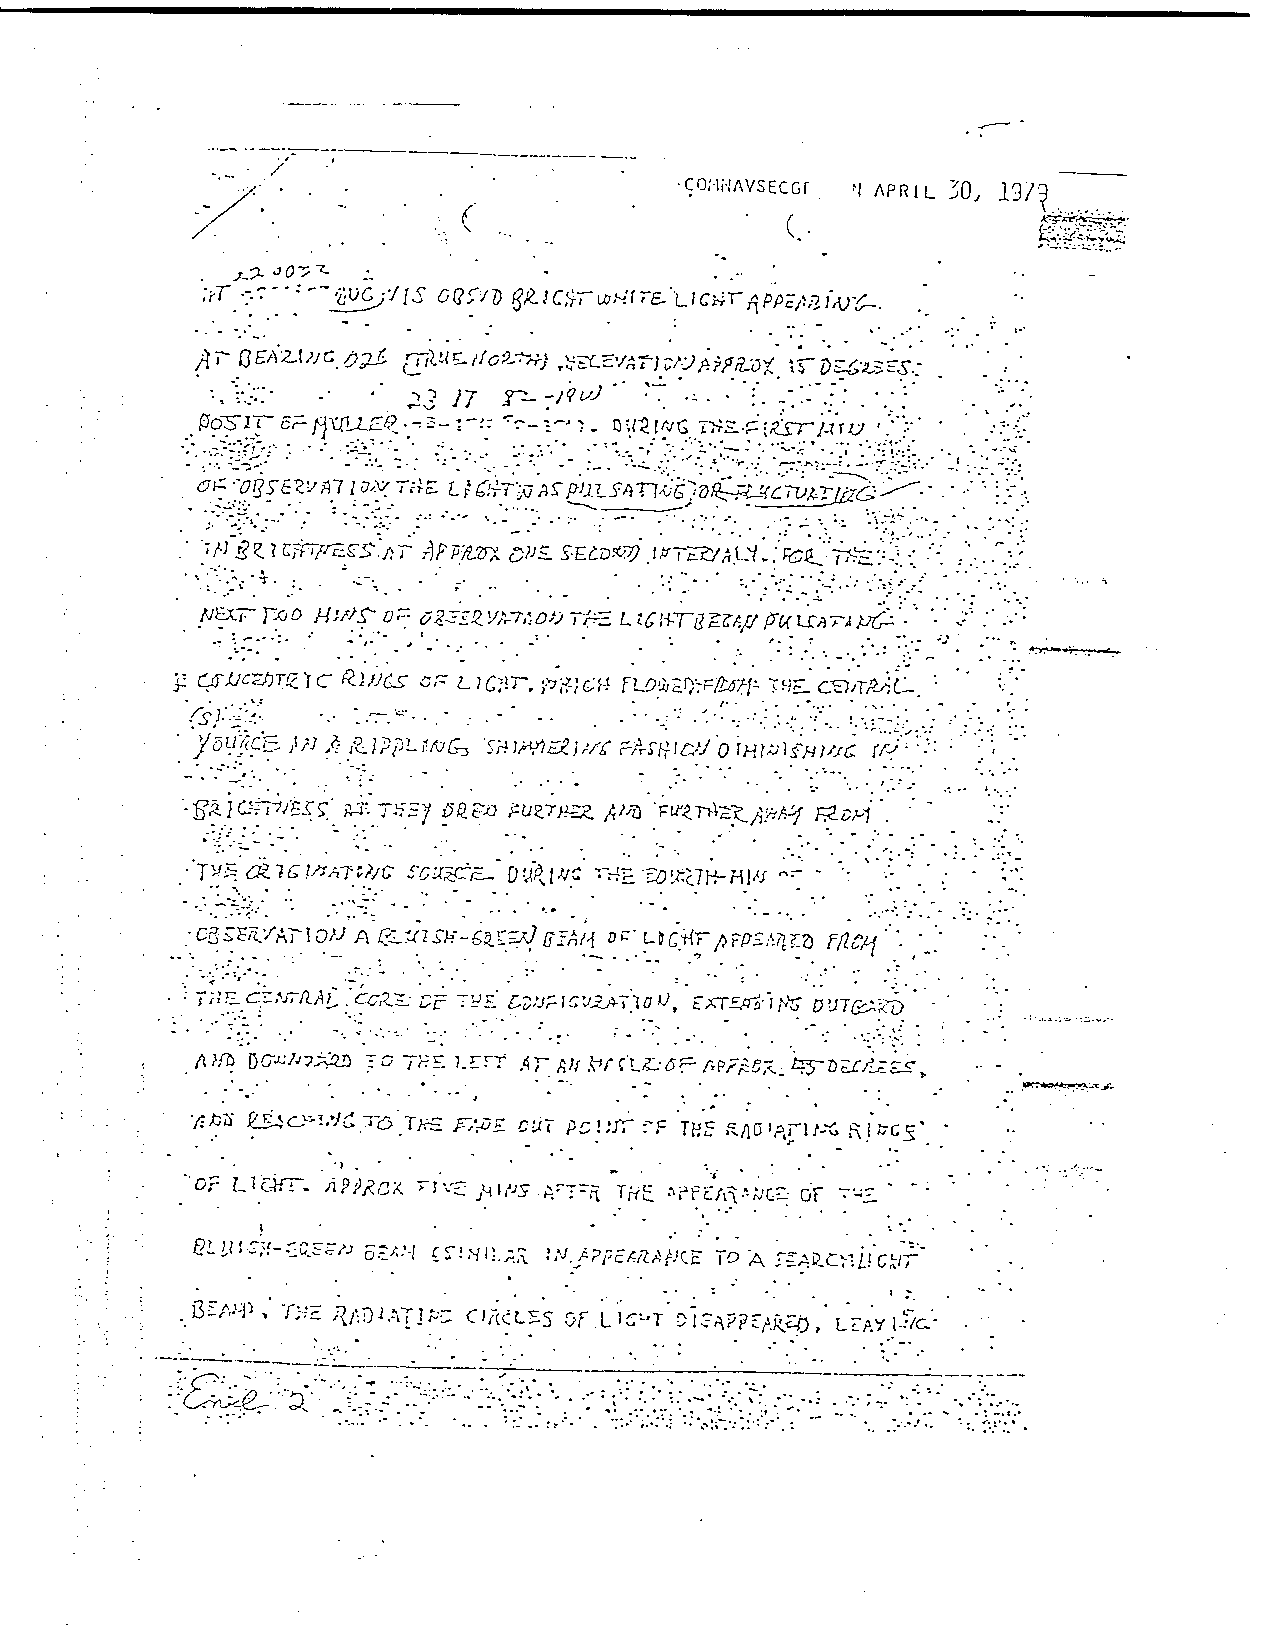 COMNAVSECGR N APRIL 30, 1979
220032
AT AUG, VIS OBSVD BRIGHT WHITE LIGHT APPEARING
AT BEARING 026 (TRUE NORTH), ELEVATION APPROX 15 DEGREES.
23 17
POSIT OF MULLER DURING THE FIRST MIN
OF OBSERVATION THE LIGHT WAS PULSATING OR FLUCTUATING
IN BRIGHTNESS AT APPROX ONE SECOND INTERVALS. FOR THE
NEXT TWO MINS OF OBSERVATION THE LIGHT BEGAN PULSATING
CONCENTRIC RINGS OF LIGHT, WHICH FLOWED FROM THE CENTRAL
(S)
YOURCE IN A RIPPLING, SHIMMERING FASHION DIMINISHING IN
BRIGHTNESS AS THEY FURTHER AND FURTHER AWAY FROM
THE ORIGINATING SOURCE. DURING THE FOURTH MIN OF
OBSERVATION A BLUISH-GREEN BEAM OF LIGHT APPEARED FROM
THE CENTRAL CORE OF THE CONFIGURATION, EXTENDING OUTWARD
AND DOWNWARD TO THE LEFT AT AN ANGLE OF APPROX. 45 DEGREES,
AND REACHING TO THE FADE OUT POINT OF THE RADIATING RINGS
OF LIGHT. APPROX FIVE MINS AFTER THE APPEARANCE OF THE
BLUISH-GREEN BEAM (SIMILAR IN APPEARANCE TO A SEARCHLIGHT
BEAM), THE RADIATING CIRCLES OF LIGHT DISAPPEARED, LEAVING
Encl 2